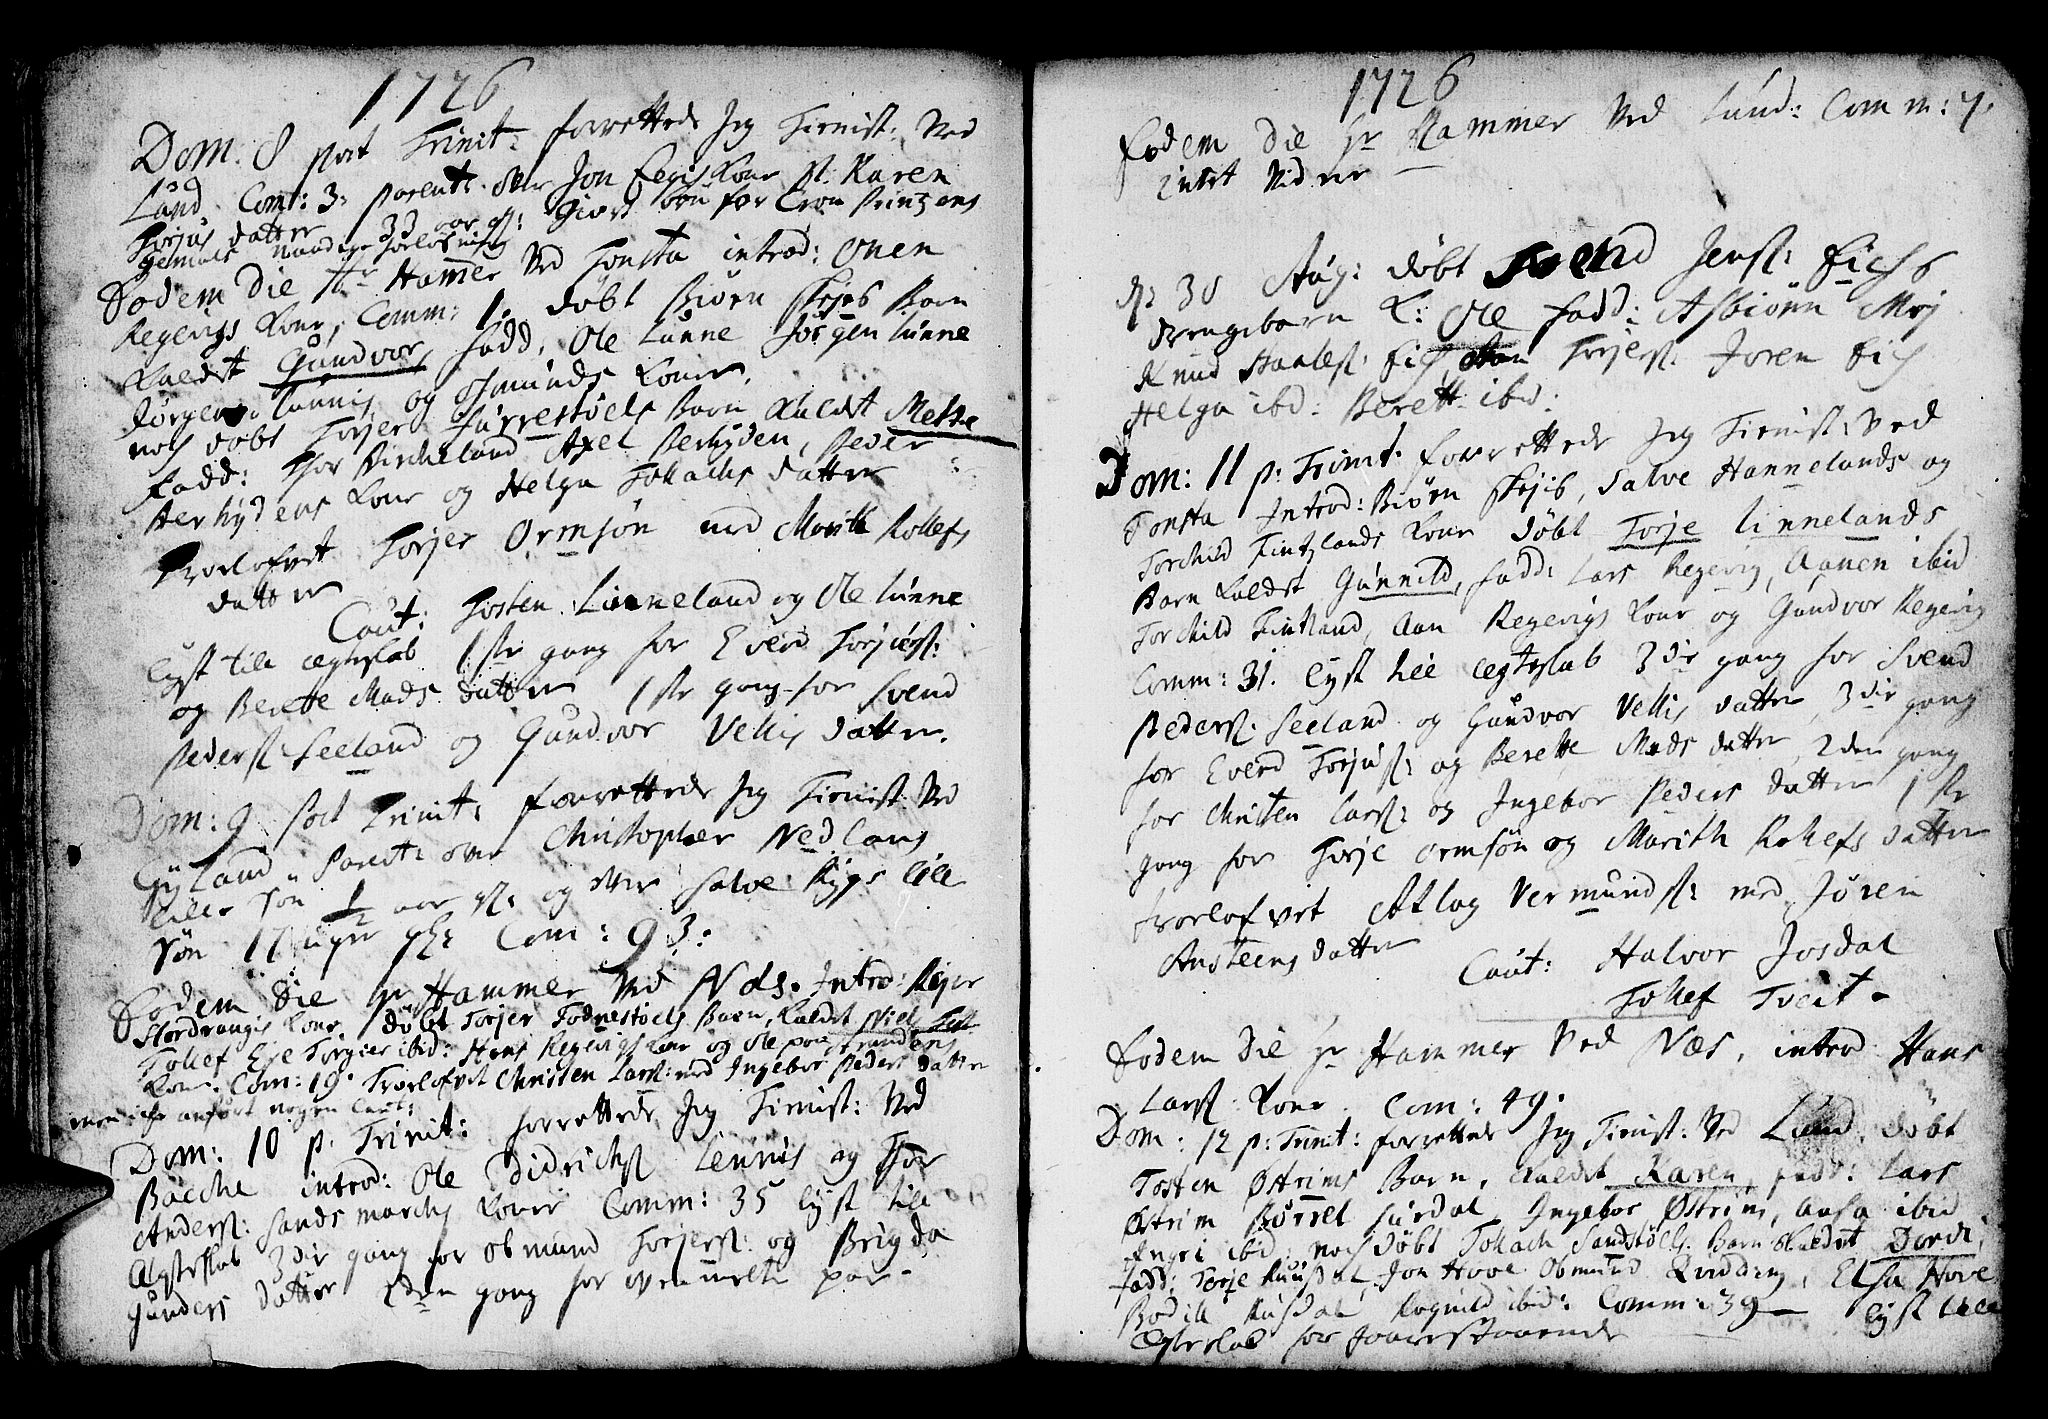 1726
Dom. 8 post Trinit: forrettede Jeg Tienist: Ved
Lund. Com: 3. parent: over Jon Kone N: Karen
Torjus datter 33 aar gl: giort bøn for Cron Printzens
gemals naadige forløsning
Eodem Die Hr Hammer Ved Tonsta introd: Onen
Regevigs Kone, Comm: 1. døbt Biørn Skejes Barn
Kaldet Gundvor, fadd. Ole Lunne Jørgen Lunne
Jørgen Lunnis og Osmunds Koner.
noch døbt Torjer Surrestøels Barn Kaldet Mette
Fadd: Thor Birkeland Axel Serhyden, Peder
Serhydens Kone og Helga Tollachs datter
Trolofvet Torjer Ormsøn med Marith Rollefs
datter
Caut: Tosten Linneland og Ole Lunne
Lyst till ægteslab 1ste gang for Everd Torjusß:
og Berette Mads datter 1ste gang for Svend
Pedersß Seeland og Gundvor Vellis datter.
Dom: 9 post Trinit: forrettede Jeg Tienist Ved
Gyland Parent: over Christopher Nedlans
lille Søn 1/2 aar gl: og over Salve Rygs lille
Søn 11 uger gl: Com: 93:
Eodem Die Hr Hammer Ved Nds. Introd: Rejer
Stordrangis Kone, døbt Torjer Todnestøels Barn, Kaldet Niel
Tollef Eje Torgier ibid: Hans Regevigs Kone og Ole paa Strandens
Kone. Com: 19. Trolofvet Christen Larsß: med Ingebor Peders datter
men iche anført nogen Caut:
Dom: 10 p. Trinit: forrettede Jeg Tienist: Ved
Bacche introd: Ole Didrichsß Lennis og Thor
Andersß: Sandsmarchs Koner Comm: 35 lyst till
Ægteslab 3die gang for Osmund Torjersß: og Brigda
Gunders datter 2den gang for ovenmelte par.
1726
Eodem Die Hr Hammer Ved Lund: Comm: 7.
intet videre
d: 30 Aug: døbt Svend Jensß: Eichs
drengebarn K: Ole fadd: Asbiønn Moj
Knud Staalesß: Eich, Torjersß: Joren Eich
Helga ibd: Berett ibid:
Dom: 11 p: Trinit: forrettede Jeg Tienist: Ved
Tonsta Introd: Biørn Skejes, Salve Hannelands og
Torchild Fintzlands Kone døbt Torje Linnelands
Barn Kaldet Gunnild, fadd: Lars Regevig, Aanen ibid
Torchild Fintland, Aan Regevigs Kone og Gundvor Regevig
Comm: 31. lyst till ægteslab 3die gang for Svend
Pedersß: Seeland og Gundvor Vellis datter, 3die gang
for Everd Torjusß: og Berette Mads datter, 2den gang
for Christen Larsß: og Ingebor Peders datter 1ste
gang for Torje Ormsøn og Marith Rollefs datter
trolofvet Atlag Vermundsß: med Jøren
Austeens datter
Caut: Halvor Josdal
Tollef Tveit.
Eodem Die Hr Hammer Ved Næs, introd Hans
Larsß: Kone. Com: 49.
Dom: 12 p: Trinit: forrettede Jeg Tienist: Ved Lund, døbt
Tosten Østrims Barn, Kaldet Karen, fadd: Lars
Østrim Børrel Surdal, Ingebor Østrim, Aasa ibid
Ingri ibid: noch døbt Tollach Sandstøls Barn Kaldet Dordi,
fadd: Torje Ruusdal, Jon Hove Osmund Qvidding, Elsa Hove
Bodil Rusdal Rognild ibid: Comm: 39 lyst till
Ægteslab for foorestaaende